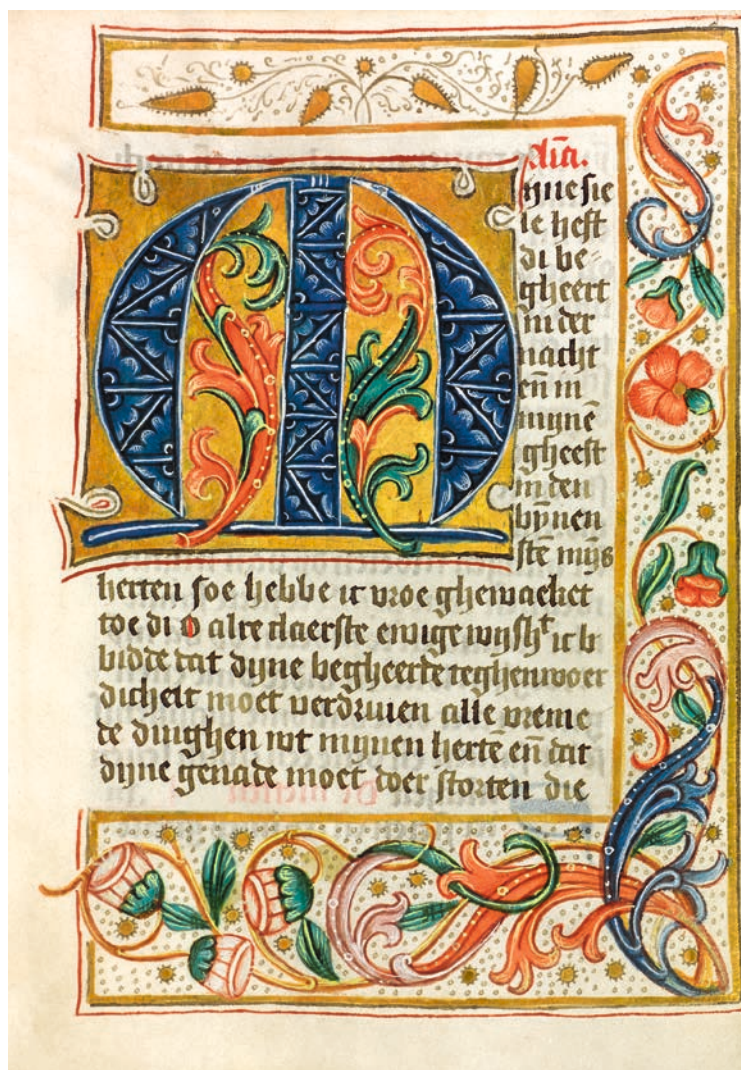 dīa.
M
yne sie
le heft
di be⸗
gheert
in der
nacht
eñ in
mynē
gheest
in den
bynnen
stē mijs
herten soe hebbe ic vroe ghewaeket
toe di O alre claerste ewige wijsht ic b
bidde dat dyne begheerde teghenwoer
dicheit moet verdriuen alle vreme
de dinghen wt mynen hertē eñ dat
dyne genade moet doer storten die